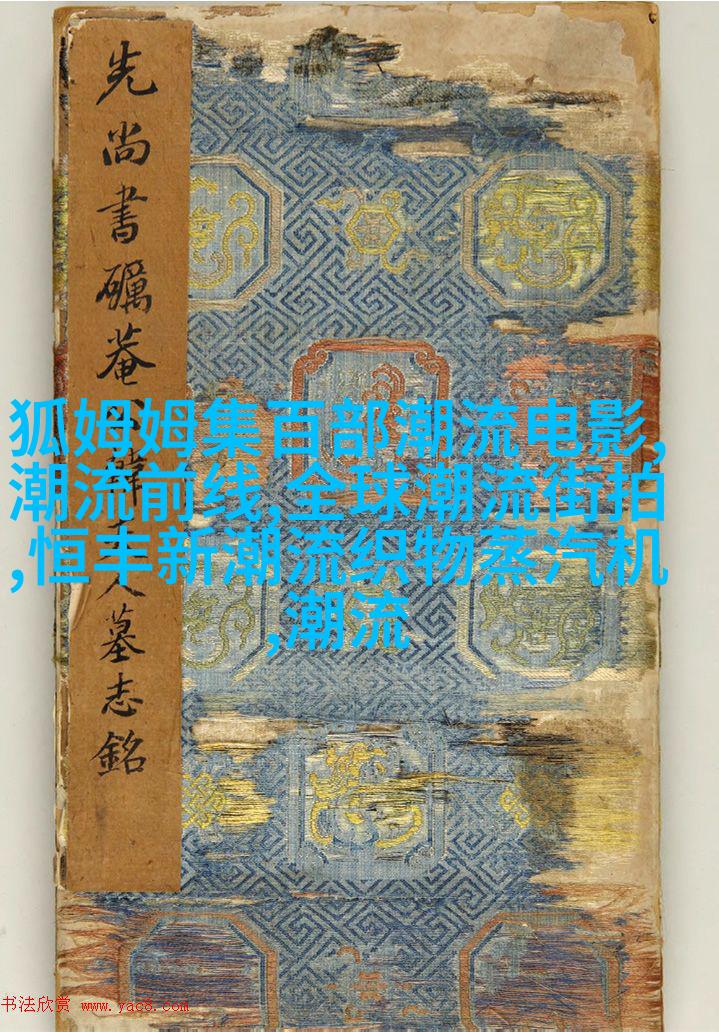 先尚書礪菴韓夫人墓志銘
狐姆姆集百部潮流电影,
潮流前线,全球潮流街拍
,恒丰新潮流织物蒸汽机
,潮流
书法欣赏 www.yac8.com